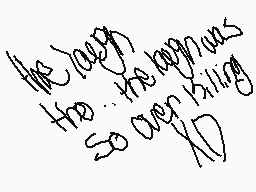 the lagn
tho.. the lagn was
so over killing
XD